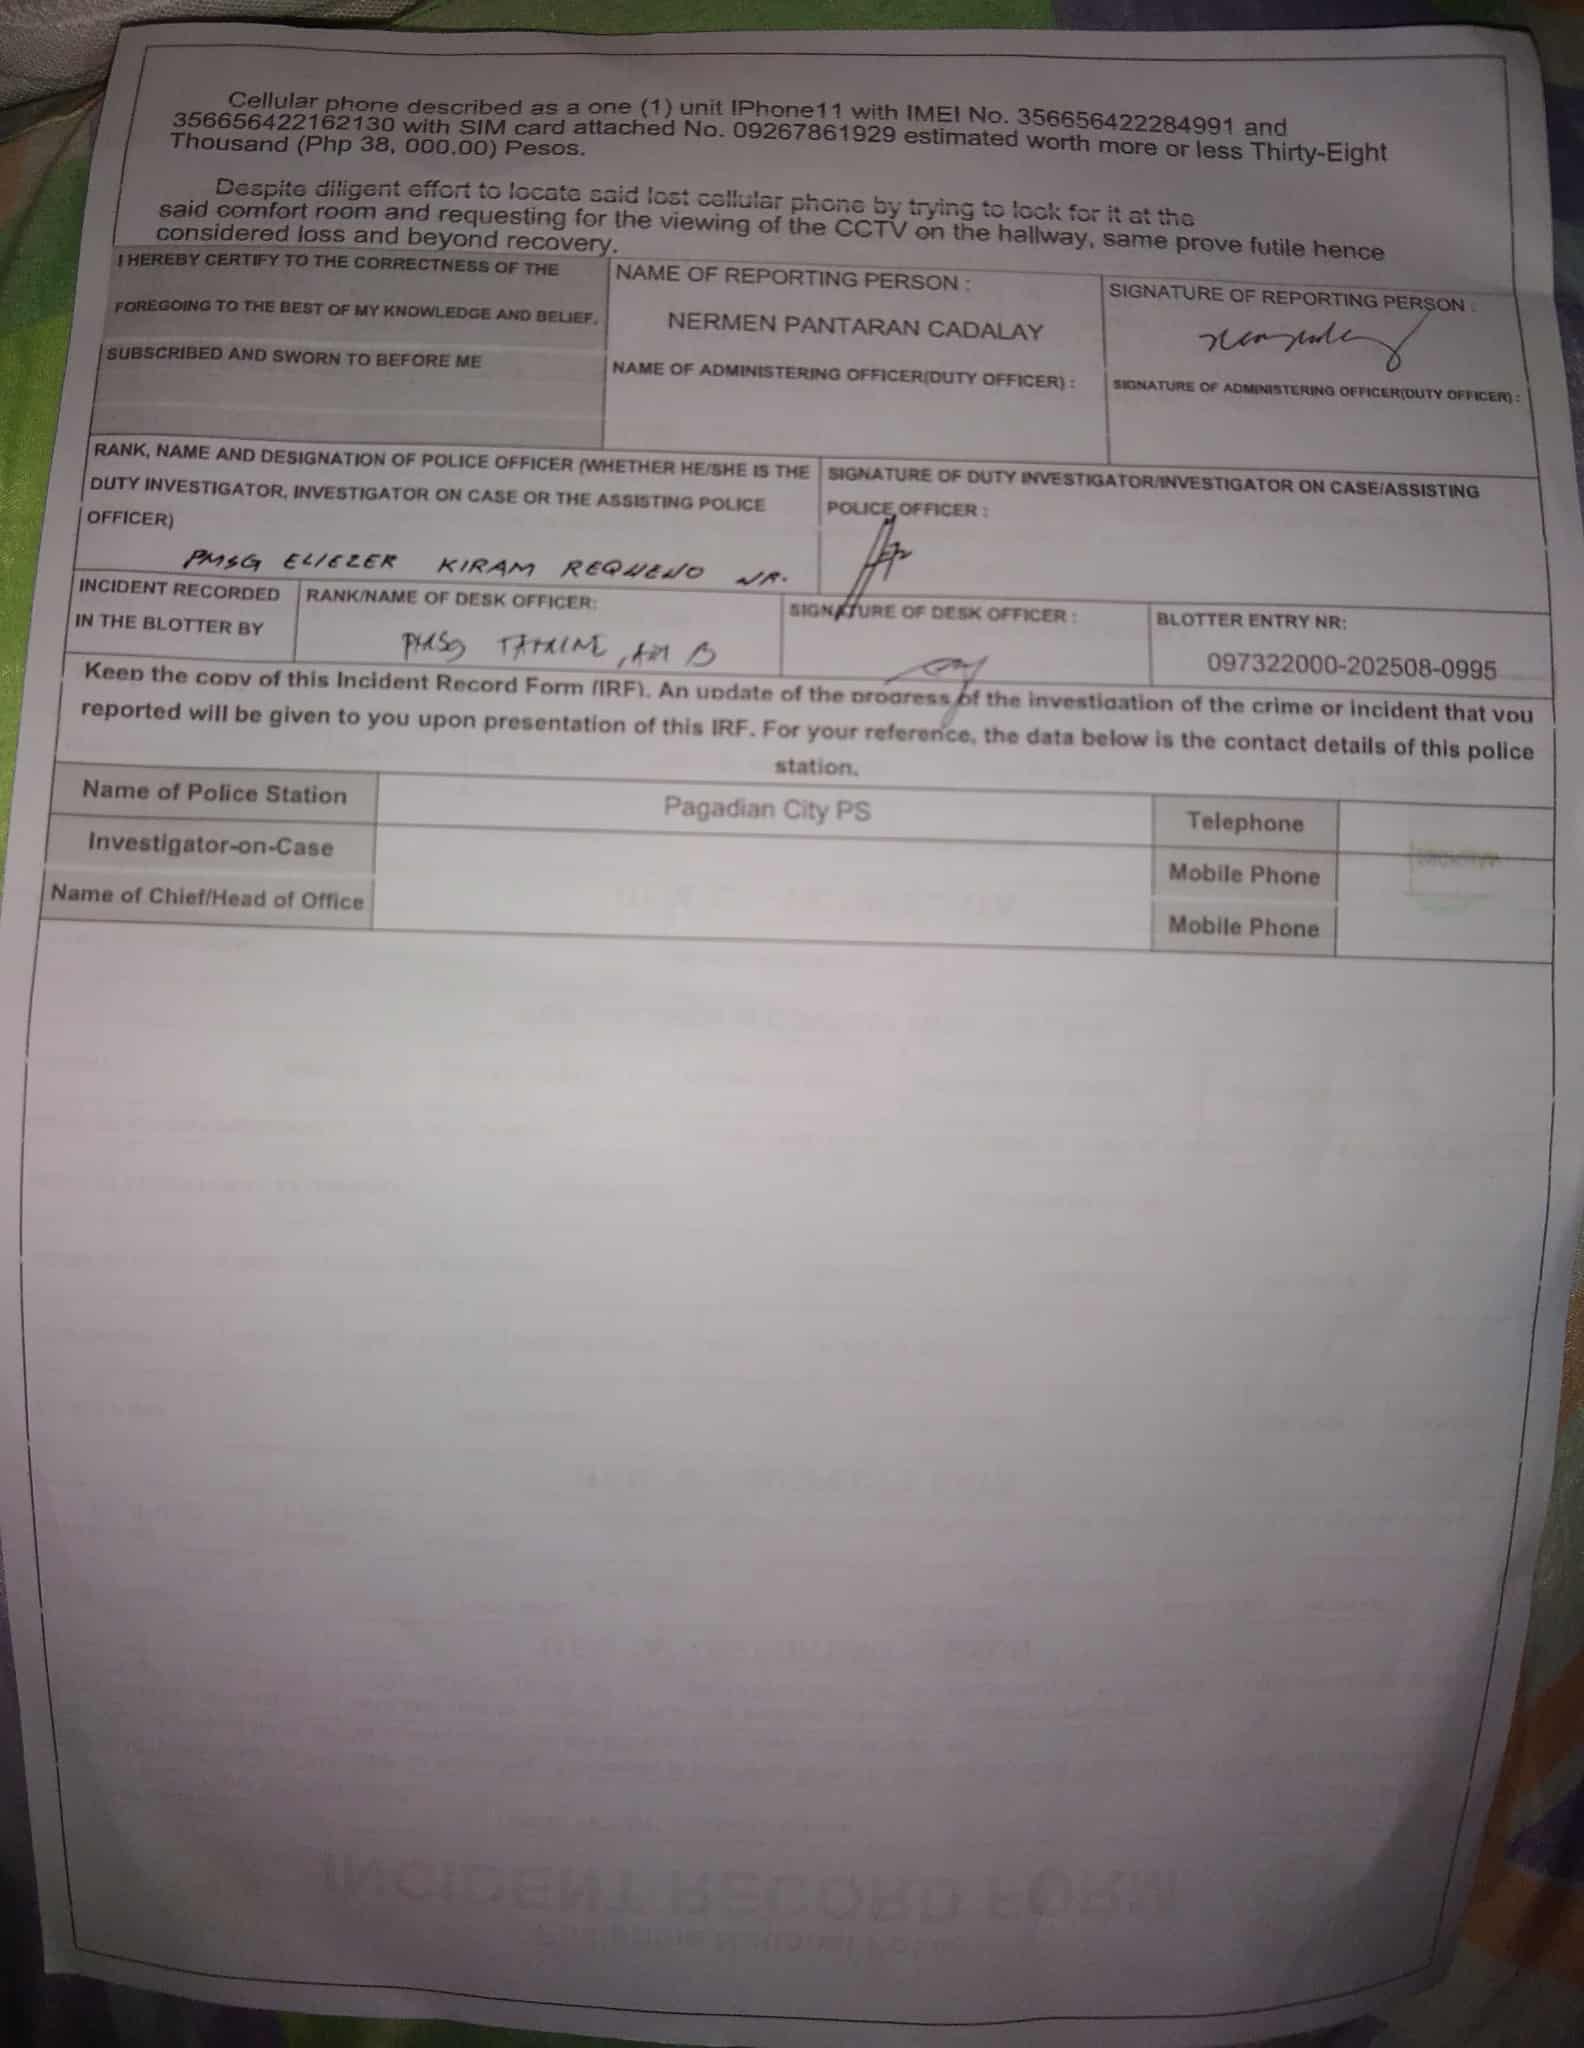 Cellular phone described as a one (1) unit IPhone11 with IMEI No. 356656422284991 and
356656422162130 with SIM card attached No. 09267861929 estimated worth more or less Thirty-Eight
Thousand (Php 38, 000.00) Pesos.
Despite diligent effort to locate said lost cellular phone by trying to look for it at the
said comfort room and requesting for the viewing of the CCTV on the hallway, same prove futile hence
considered loss and beyond recovery.
I HEREBY CERTIFY TO THE CORRECTNESS OF THE
FOREGOING TO THE BEST OF MY KNOWLEDGE AND BELIEF.
NAME OF REPORTING PERSON :
NERMEN PANTARAN CADALAY
SIGNATURE OF REPORTING PERSON :
SUBSCRIBED AND SWORN TO BEFORE ME
NAME OF ADMINISTERING OFFICER(DUTY OFFICER) :
SIGNATURE OF ADMINISTERING OFFICER(DUTY OFFICER) :
RANK, NAME AND DESIGNATION OF POLICE OFFICER (WHETHER HE/SHE IS THE
DUTY INVESTIGATOR, INVESTIGATOR ON CASE OR THE ASSISTING POLICE
OFFICER)
PMSG ELIEZER KIRAM REQUENO JR.
SIGNATURE OF DUTY INVESTIGATOR/INVESTIGATOR ON CASE/ASSISTING
POLICE OFFICER :
INCIDENT RECORDED
IN THE BLOTTER BY
RANK/NAME OF DESK OFFICER:
PMSG
SIGNATURE OF DESK OFFICER :
BLOTTER ENTRY NR:
097322000-202508-0995
Keep the copy of this Incident Record Form (IRF). An update of the progress of the investigation of the crime or incident that you
reported will be given to you upon presentation of this IRF. For your reference, the data below is the contact details of this police
station.
Name of Police Station
Pagadian City PS
Telephone
Investigator-on-Case
Mobile Phone
Name of Chief/Head of Office
Mobile Phone
INCIDENT RECORD FORM